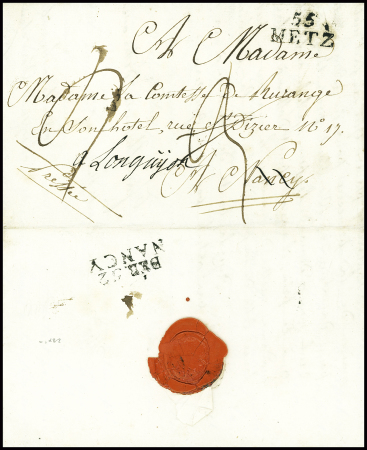 55
METZ
A Madame
Madame La Comtesse de Rurange
En Son hôtel, rue St Dizier No 19.
à Longuyon
A Nancy.
Pressée
DEB. 52
NANCY